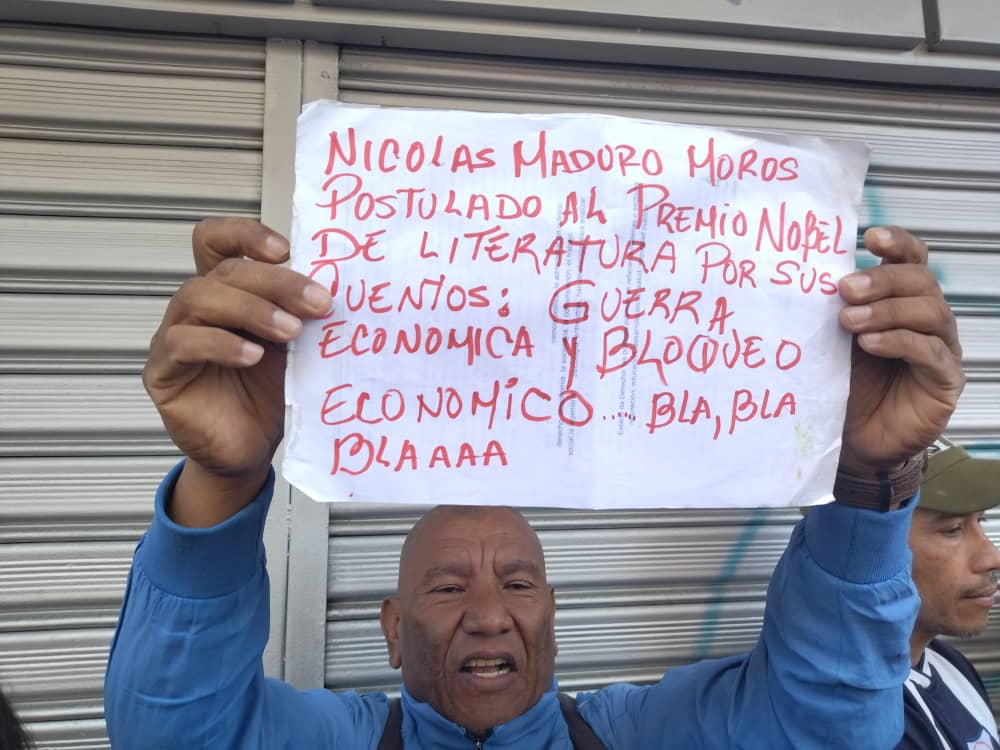 NICOLAS MADURO MOROS
POSTULADO AL PREMIO NOBEL
DE LITERATURA POR SUS
CUENTOS: GUERRA
ECONOMICA Y BLOQUEO
ECONOMICO..... BLA, BLA
BLAAAA